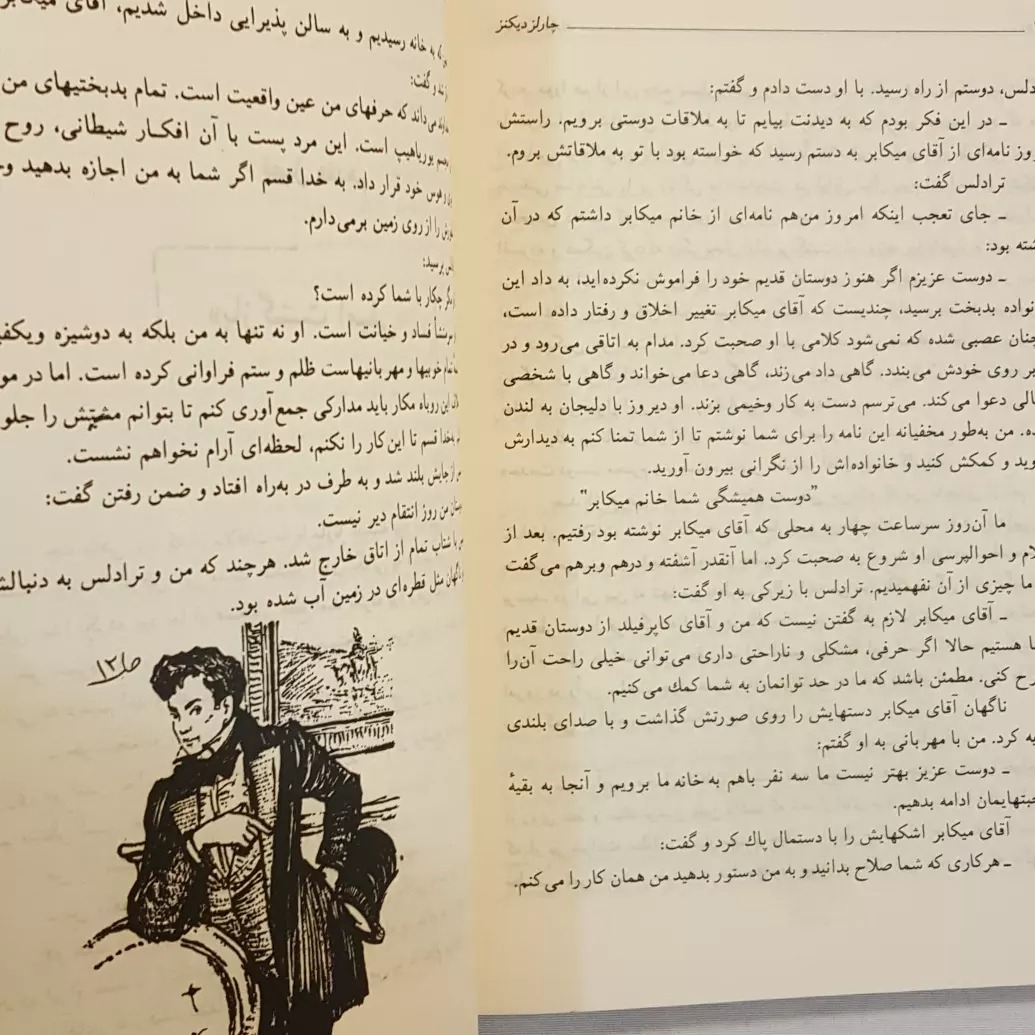 چارلز دیکنز
دلس، دوستم از راه رسید. با او دست دادم و گفتم:
ـ در این فکر بودم که به دیدنت بیایم تا به ملاقات دوستی برویم. راستش
روز نامه‌ای از آقای میکابر به دستم رسید که خواسته بود با تو به ملاقاتش بروم.
ترادلس گفت:
ـ جای تعجب اینکه امروز من‌هم نامه‌ای از خانم میکابر داشتم که در آن
شته بود:
ـ دوست عزیزم اگر هنوز دوستان قدیم خود را فراموش نکرده‌اید، به داد این
نواده بدبخت برسید، چندیست که آقای میکابر تغییر اخلاق و رفتار داده است،
چنان عصبی شده که نمی‌شود کلامی با او صحبت کرد. مدام به اتاقی می‌رود و در
بر روی خودش می‌بندد. گاهی داد می‌زند، گاهی دعا می‌خواند و گاهی با شخصی
الی دعوا می‌کند. می‌ترسم دست به کار وخیمی بزند. او دیروز با دلیجان به لندن
ده. من به‌طور مخفیانه این نامه را برای شما نوشتم تا از شما تمنا کنم به دیدارش
وید و کمکش کنید و خانواده‌اش را از نگرانی بیرون آورید.
"دوست همیشگی شما خانم میکابر"
ما آن‌روز سرساعت چهار به محلی که آقای میکابر نوشته بود رفتیم. بعد از
لام و احوالپرسی او شروع به صحبت کرد. اما آنقدر آشفته و درهم وبرهم می‌گفت
ما چیزی از آن نفهمیدیم. ترادلس با زیرکی به او گفت:
ـ آقای میکابر لازم به گفتن نیست که من و آقای کاپرفیلد از دوستان قدیم
ما هستیم حالا اگر حرفی، مشکلی و ناراحتی داری می‌توانی خیلی راحت آن‌را
رح کنی. مطمئن باشد که ما در حد توانمان به شما کمك می‌کنیم.
ناگهان آقای میکابر دستهایش را روی صورتش گذاشت و با صدای بلندی
یه کرد. من با مهربانی به او گفتم:
ـ دوست عزیز بهتر نیست ما سه نفر باهم به خانه ما برویم و آنجا به بقیهٔ
حبتهایمان ادامه بدهیم.
آقای میکابر اشکهایش را با دستمال پاك کرد و گفت:
ـ هرکاری که شما صلاح بدانید و به من دستور بدهید من همان کار را می‌کنم.
که به خانه رسیدیم و به سالن پذیرایی داخل شدیم، آقای میکابر
و گفت:
می‌داند که حرفهای من عین واقعیت است. تمام بدبختیهای من
یوریاهیپ است. این مرد پست با آن افکار شیطانی، روح
و هوس خود قرار داد. به خدا قسم اگر شما به من اجازه بدهید
را از روی زمین برمی‌دارم.
پرسید:
چکار با شما کرده است؟
فساد و خیانت است. او نه تنها به من بلکه به دوشیزه ویکف
تمام خوبیها و مهربانیهاست ظلم و ستم فراوانی کرده است. اما در مو
این روباه مکار باید مدارکی جمع‌آوری کنم تا بتوانم مشتش را جلو
به‌خدا قسم تا این‌کار را نکنم، لحظه‌ای آرام نخواهم نشست.
از جایش بلند شد و به طرف در به‌راه افتاد و ضمن رفتن گفت:
من روز انتقام دیر نیست.
با شتاب تمام از اتاق خارج شد. هرچند که من و ترادلس به دنبالش
ناگهان مثل قطره‌ای در زمین آب شده بود.